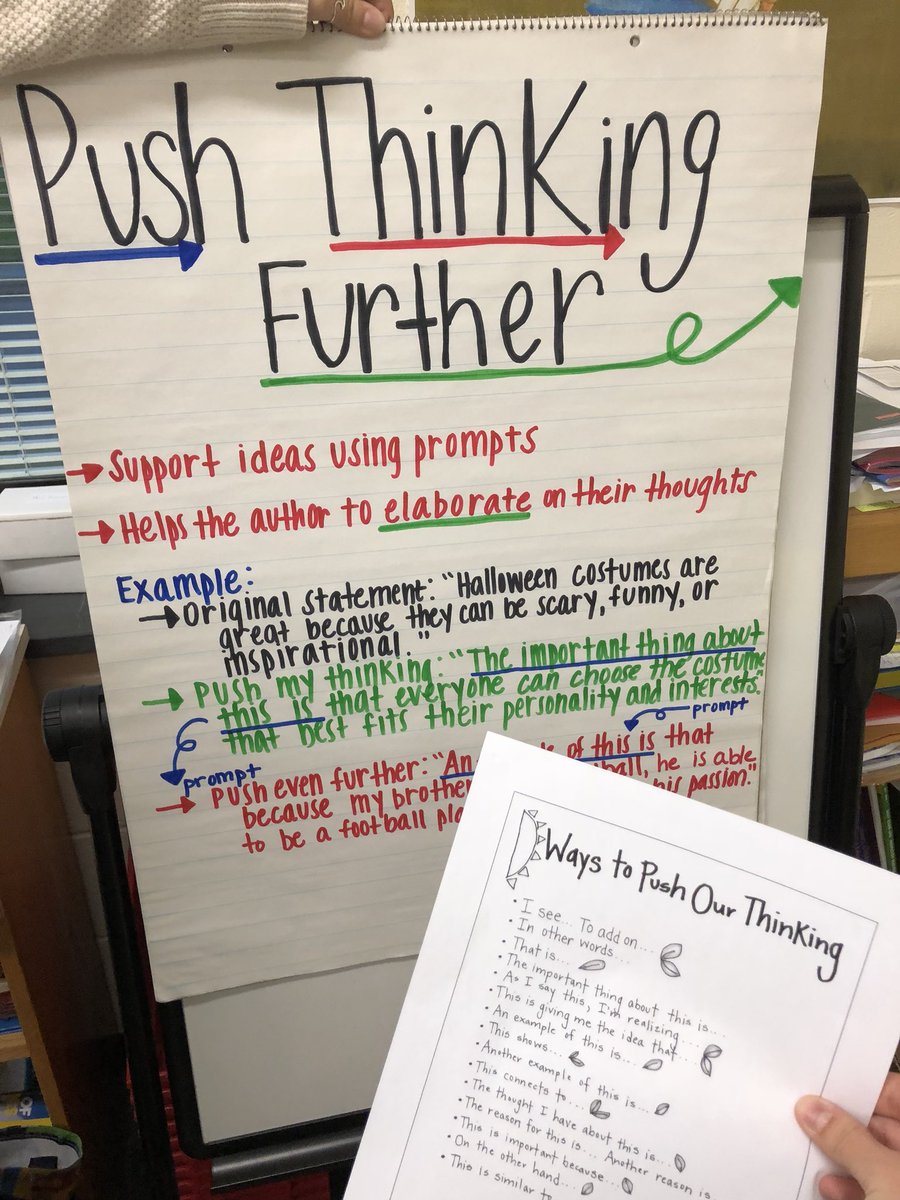 Push Thinking
Further
Support ideas using prompts
Helps the author to elaborate on their thoughts
Example:
Original statement: "Halloween costumes are
great because they can be scary, funny, or
inspirational."
Push my thinking: "The important thing about
this is that everyone can choose the costume
that best fits their personality and interests."
prompt
prompt
Push even further: "An of this is that
because my brother he is able
to be a football his passion."
Ways to Push Our Thinking
• I see... To add on...
• In other words...
• That is...
• The important thing about this is...
• As I say this, I'm realizing...
• This is giving me the idea that...
• An example of this is...
• This shows...
• Another example of this is...
• This connects to...
• The thought I have about this is...
• The reason for this is... Another reason is
• This is important because...
• On the other hand...
• This is similar to
OF